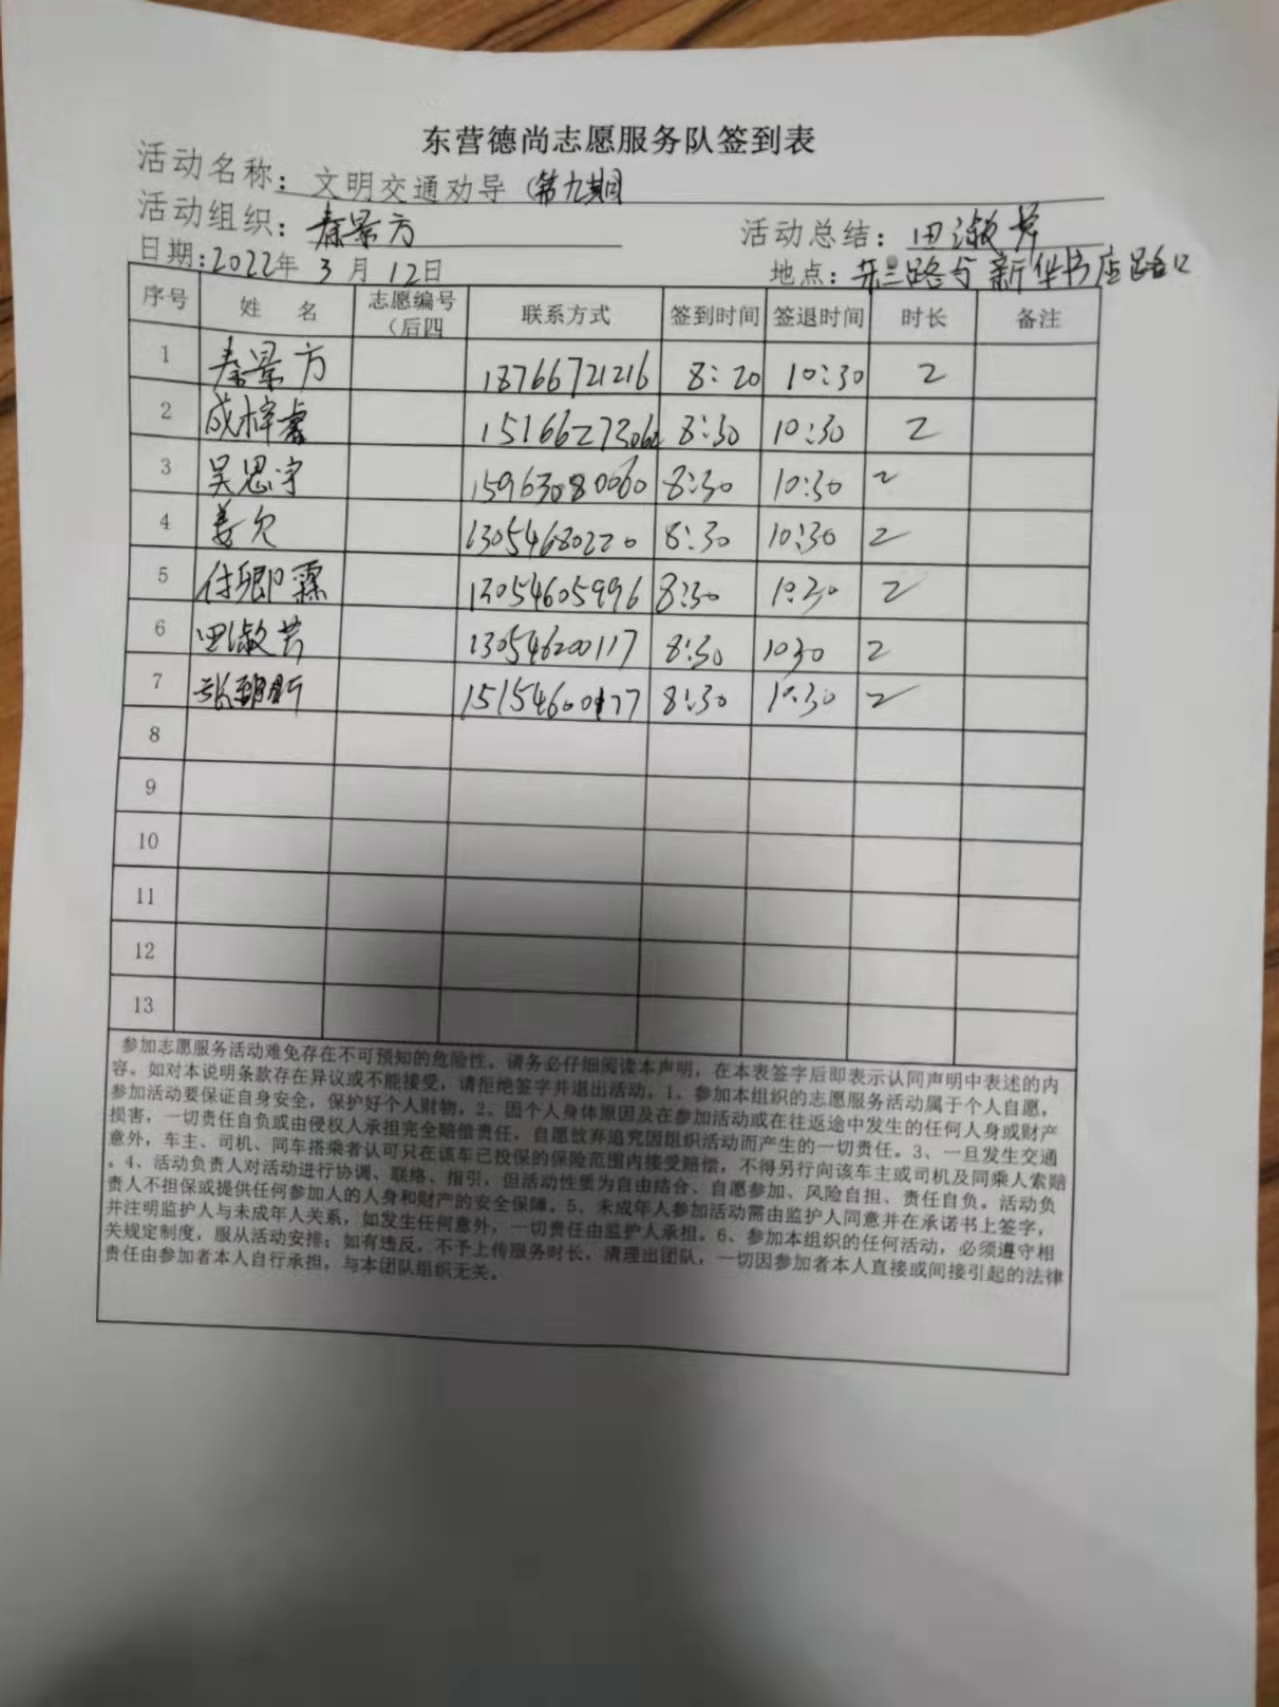 东营德尚志愿服务队签到表
活动名称：文明交通劝导（第九期）
活动组织：秦景方 活动总结：田淑芳
日期：2022年3月12日 地点：东三路与新华书店路口
序号 姓 名 志愿编号（后四 联系方式 签到时间 签退时间 时长 备注
1 秦景方 18766721216 8:20 10:30 2
2 成梓睿 15166273060 8:30 10:30 2
3 吴思宇 15963080060 8:30 10:30 2
4 姜欠 13054680220 8:30 10:30 2
5 付卿霖 13054605996 8:30 10:30 2
6 田淑芳 13054620117 8:30 1030 2
7 张 15154600177 8:30 10:30 2
8
9
10
11
12
13
参加志愿服务活动难免存在不可预知的危险性。请务必仔细阅读本声明，在本表签字后即表示认同声明中表述的内
容。如对本说明条款存在异议或不能接受，请拒绝签字并退出活动。1、参加本组织的志愿服务活动属于个人自愿，
参加活动要保证自身安全，保护好个人财物。2、因个人身体原因及在参加活动或在往返途中发生的任何人身或财产
损害，一切责任自负或由侵权人承担完全赔偿责任，自愿放弃追究因组织活动而产生的一切责任。3、一旦发生交通
意外，车主、司机、同车搭乘者认可只在该车已投保的保险范围内接受赔偿，不得另行向该车主或司机及同乘人索赔
。4、活动负责人对活动进行协调、联络、指引，但活动性质为自由结合、自愿参加、风险自担、责任自负。活动负
责人不担保或提供任何参加人的人身和财产的安全保障。5、未成年人参加活动需由监护人同意并在承诺书上签字，
并注明监护人与未成年人关系，如发生任何意外，一切责任由监护人承担。6、参加本组织的任何活动，必须遵守相
关规定制度，服从活动安排；如有违反，不予上传服务时长，清理出团队，一切因参加者本人直接或间接引起的法律
责任由参加者本人自行承担，与本团队组织无关。